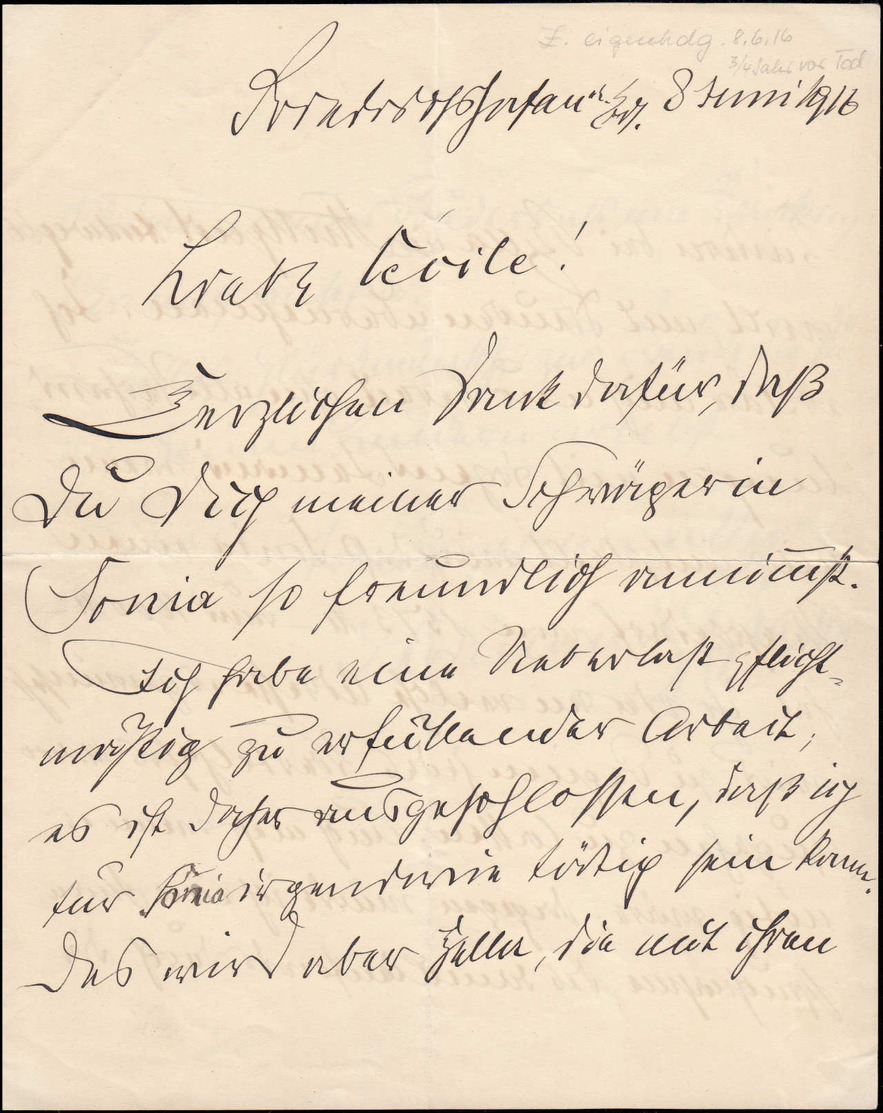 Z. eigenhdg. 8.6.16
3/4 Jahr vor Tod
Friedrichshafen 8 Juni 1916
Liebe Cécile!
Herzlichen Dank dafür, daß
Du Dich meiner Schwägerin
Sonia so freundlich annim̅st.
Ich habe eine Ueberlast pflicht-
mäßig zu erfüllender Arbeit,
es ist daher ausgeschlossen, daß ich
für Sonia irgendwie tätig sein kann.
Das wird aber Hella, die mit ihren